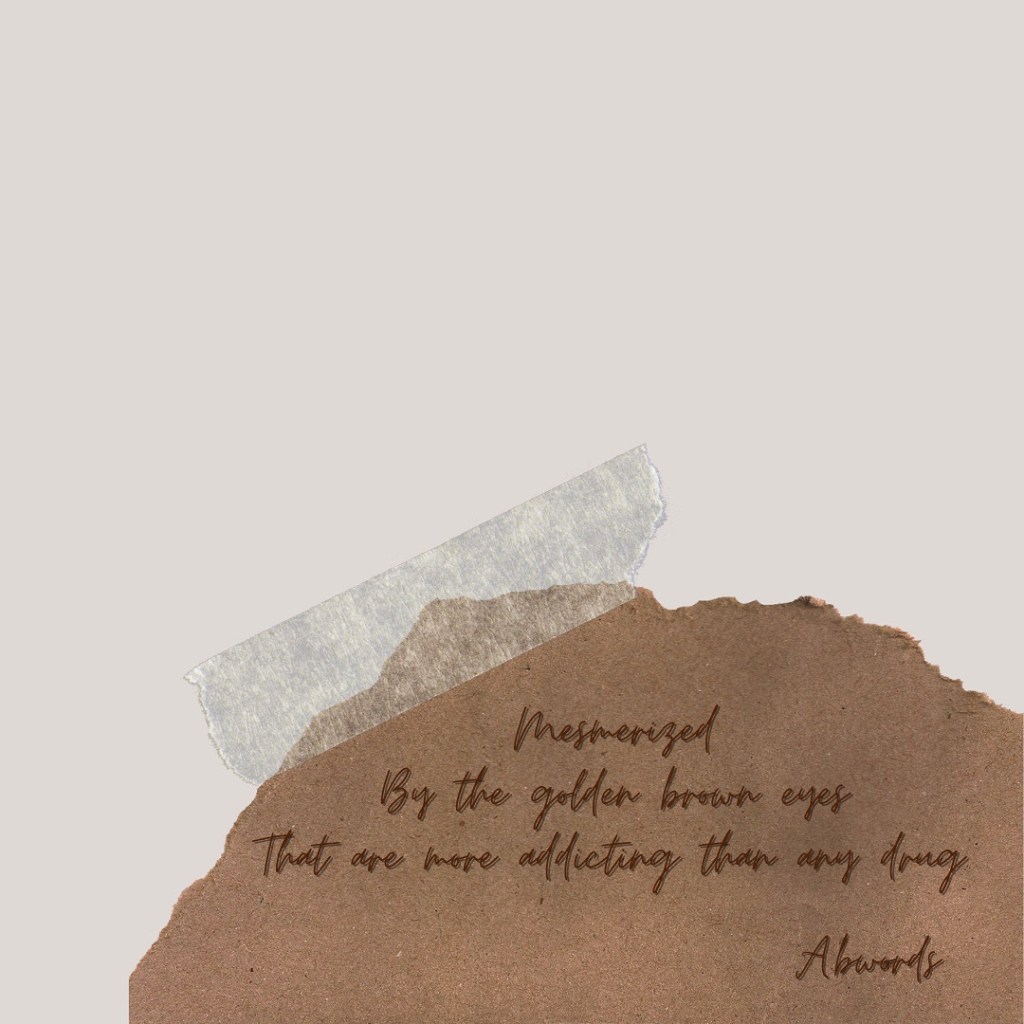 Mesmerized
By the golden brown eyes
That are more addicting than any drug
Abwords